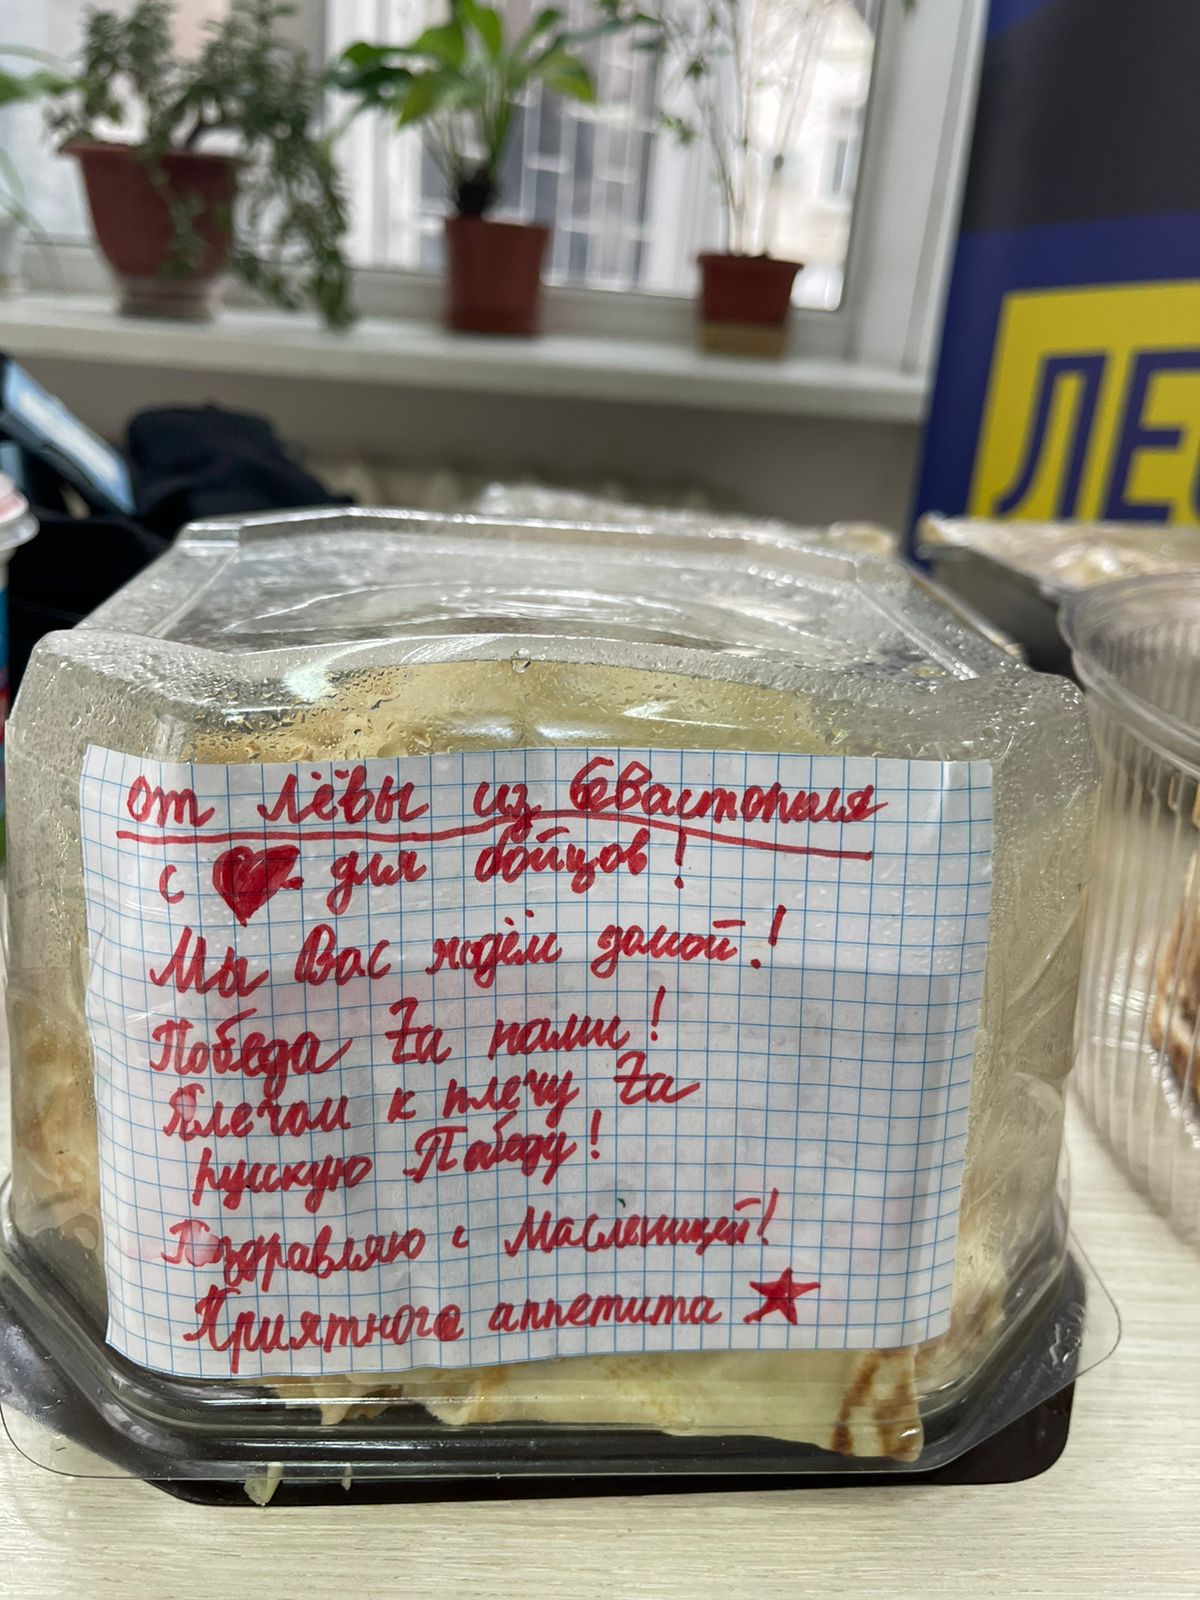 ЛЕ
от Лёвы из Севастополя
с ❤ для бойцов!
Мы Вас ждём домой!
Победа Zа нами!
Плечом к плечу Zа
русскую Победу!
Поздравляю с Масленицей!
Приятного аппетита ★